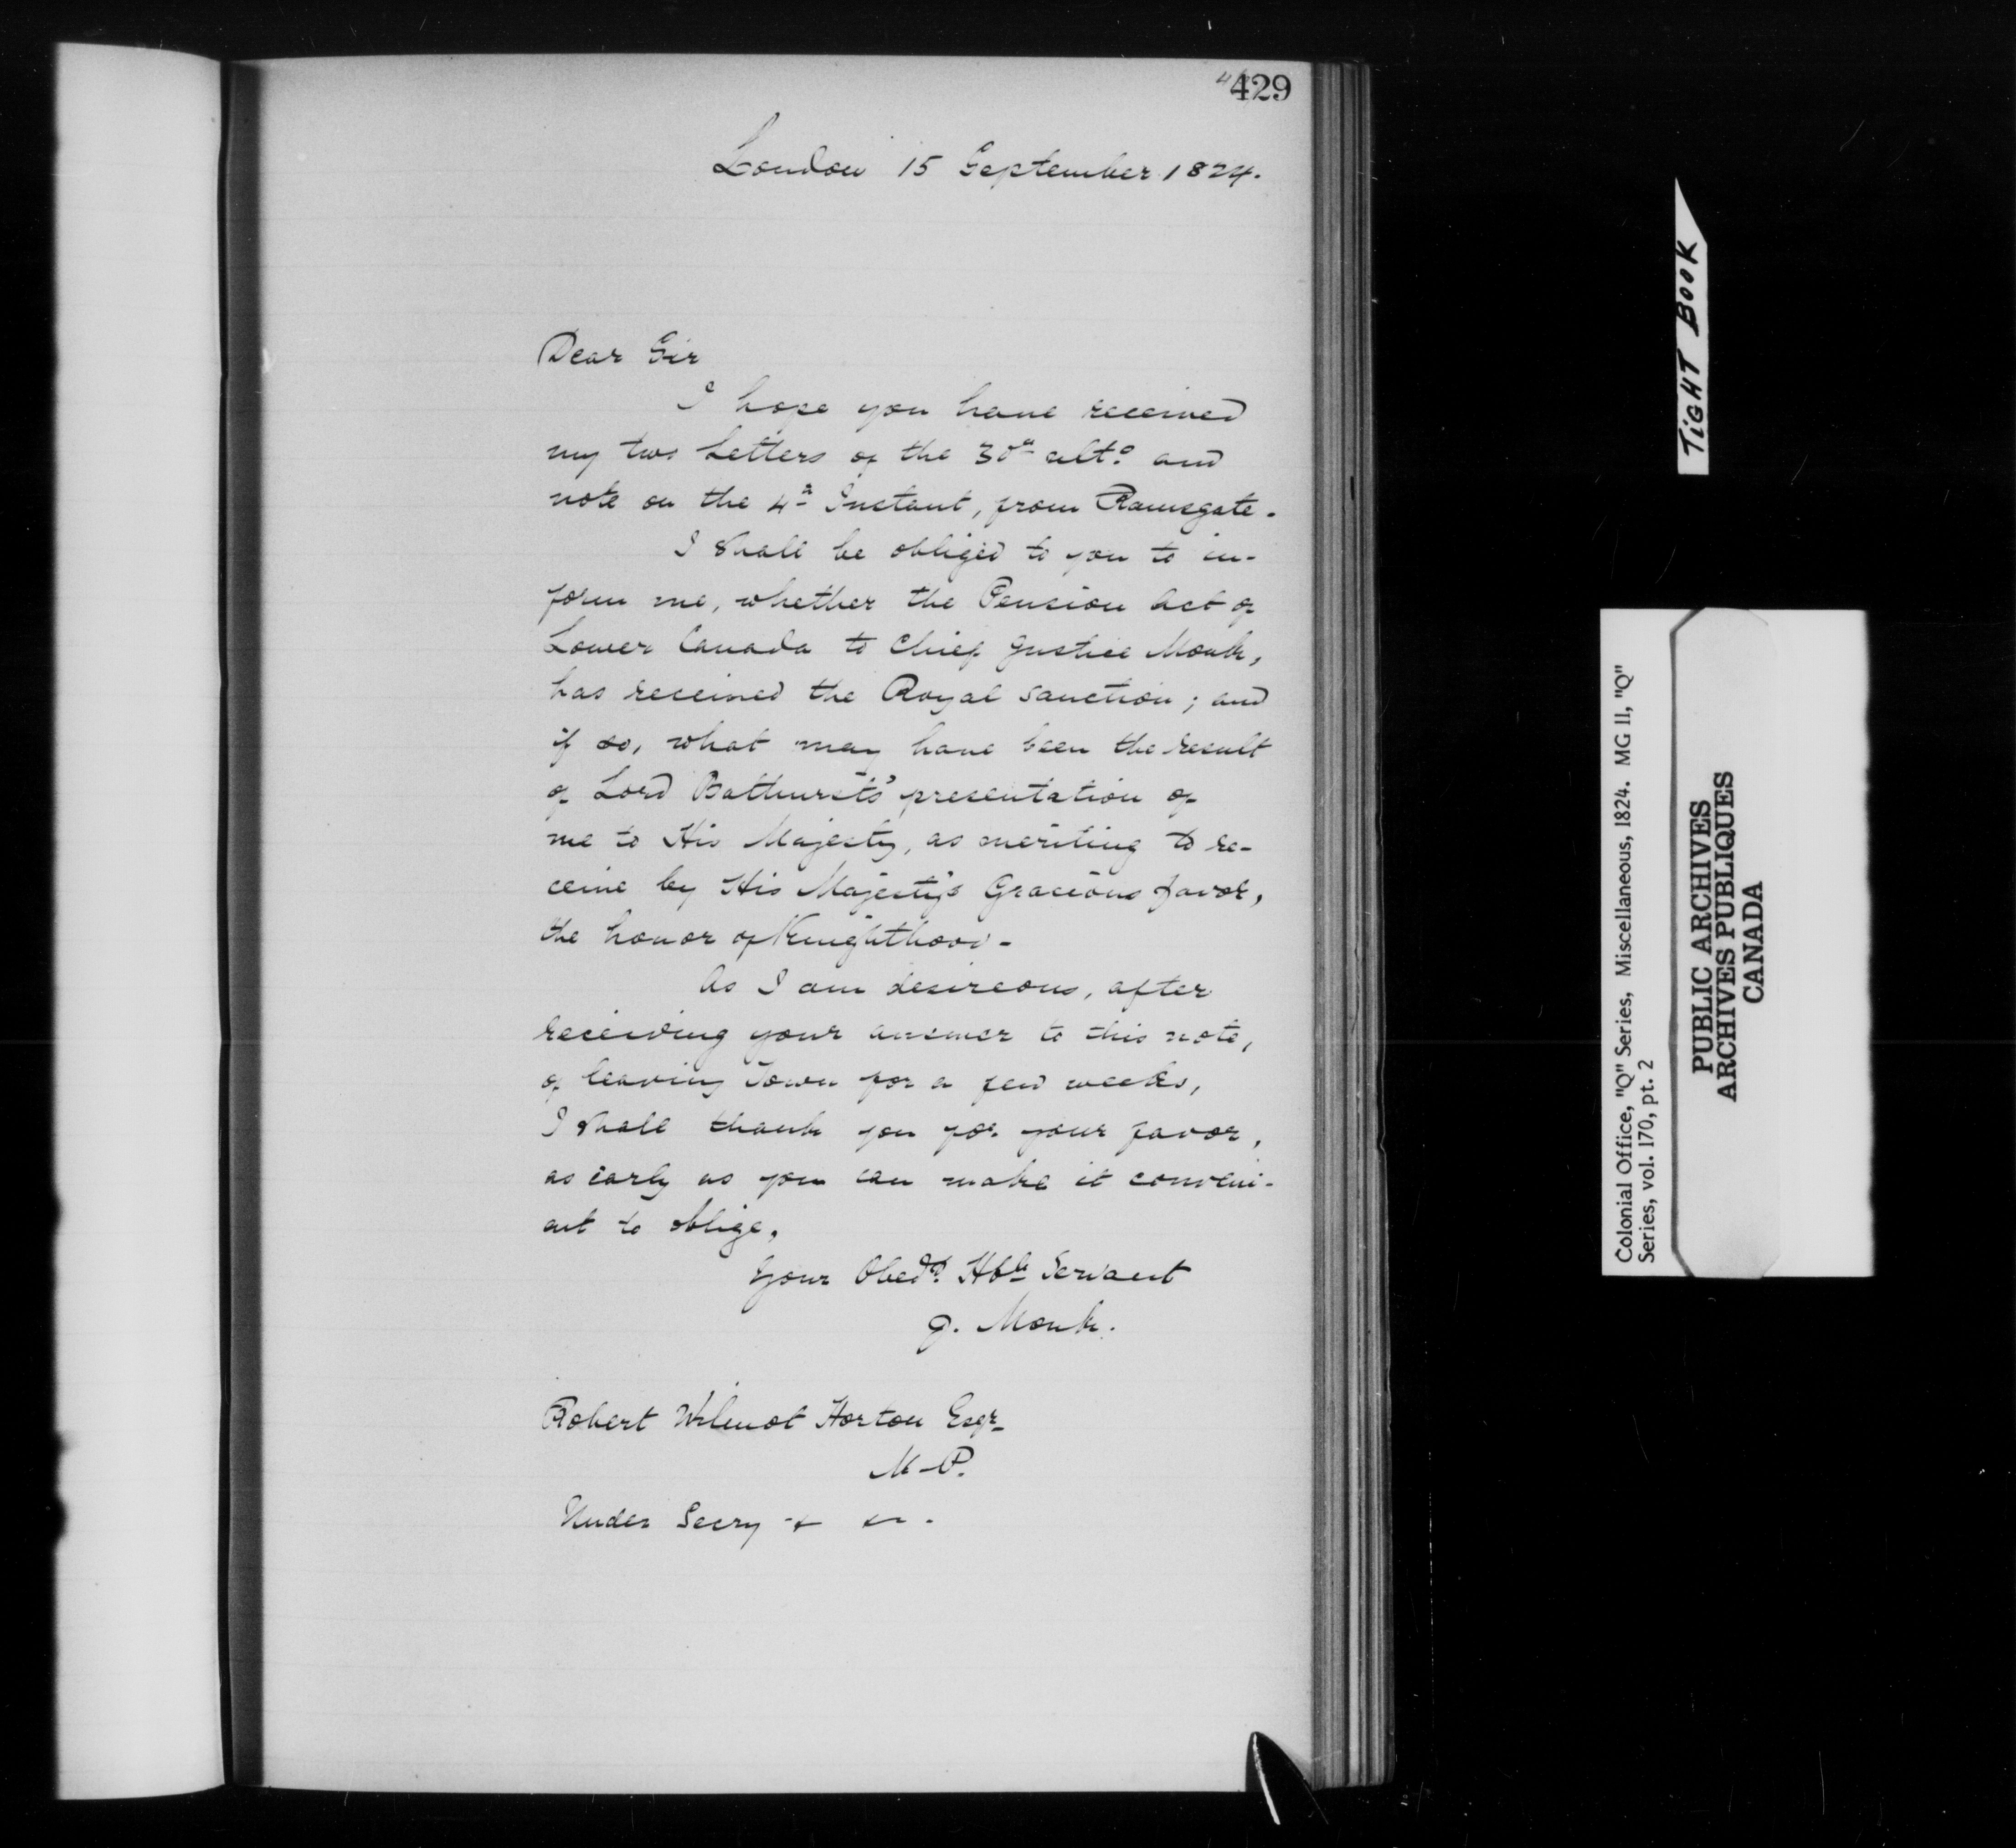 429
London 15 September 1824.
Dear Sir
I hope you have received
my two Letters of the 30th ulto. and
note on the 4th Instant, from Ramsgate.
I shall be obliged to you to in-
form me, whether the Pension Act of
Lower Canada to Chief Justice Monk,
has received the Royal Sanction; and
if so, what may have been the result
of Lord Bathurst's presentation of
me to His Majesty, as meriting to re-
ceive by His Majesty's Gracious favor,
the honor of Knighthood-
As I am desireous, after
receiving your answer to this note,
of leaving Town for a few weeks,
I shall thank you for your favor,
as early as you can make it conveni-
ent to oblige,
Your Obedt. Hble Servant
J. Monk.
Robert Wilmot Horton Esqr
M-P.
Under Secry
TIGHT BOOK
Colonial Office, "Q" Series, Miscellaneous, 1824. MG 11, "Q"
Series, vol. 170, pt. 2
PUBLIC ARCHIVES
ARCHIVES PUBLIQUES
CANADA